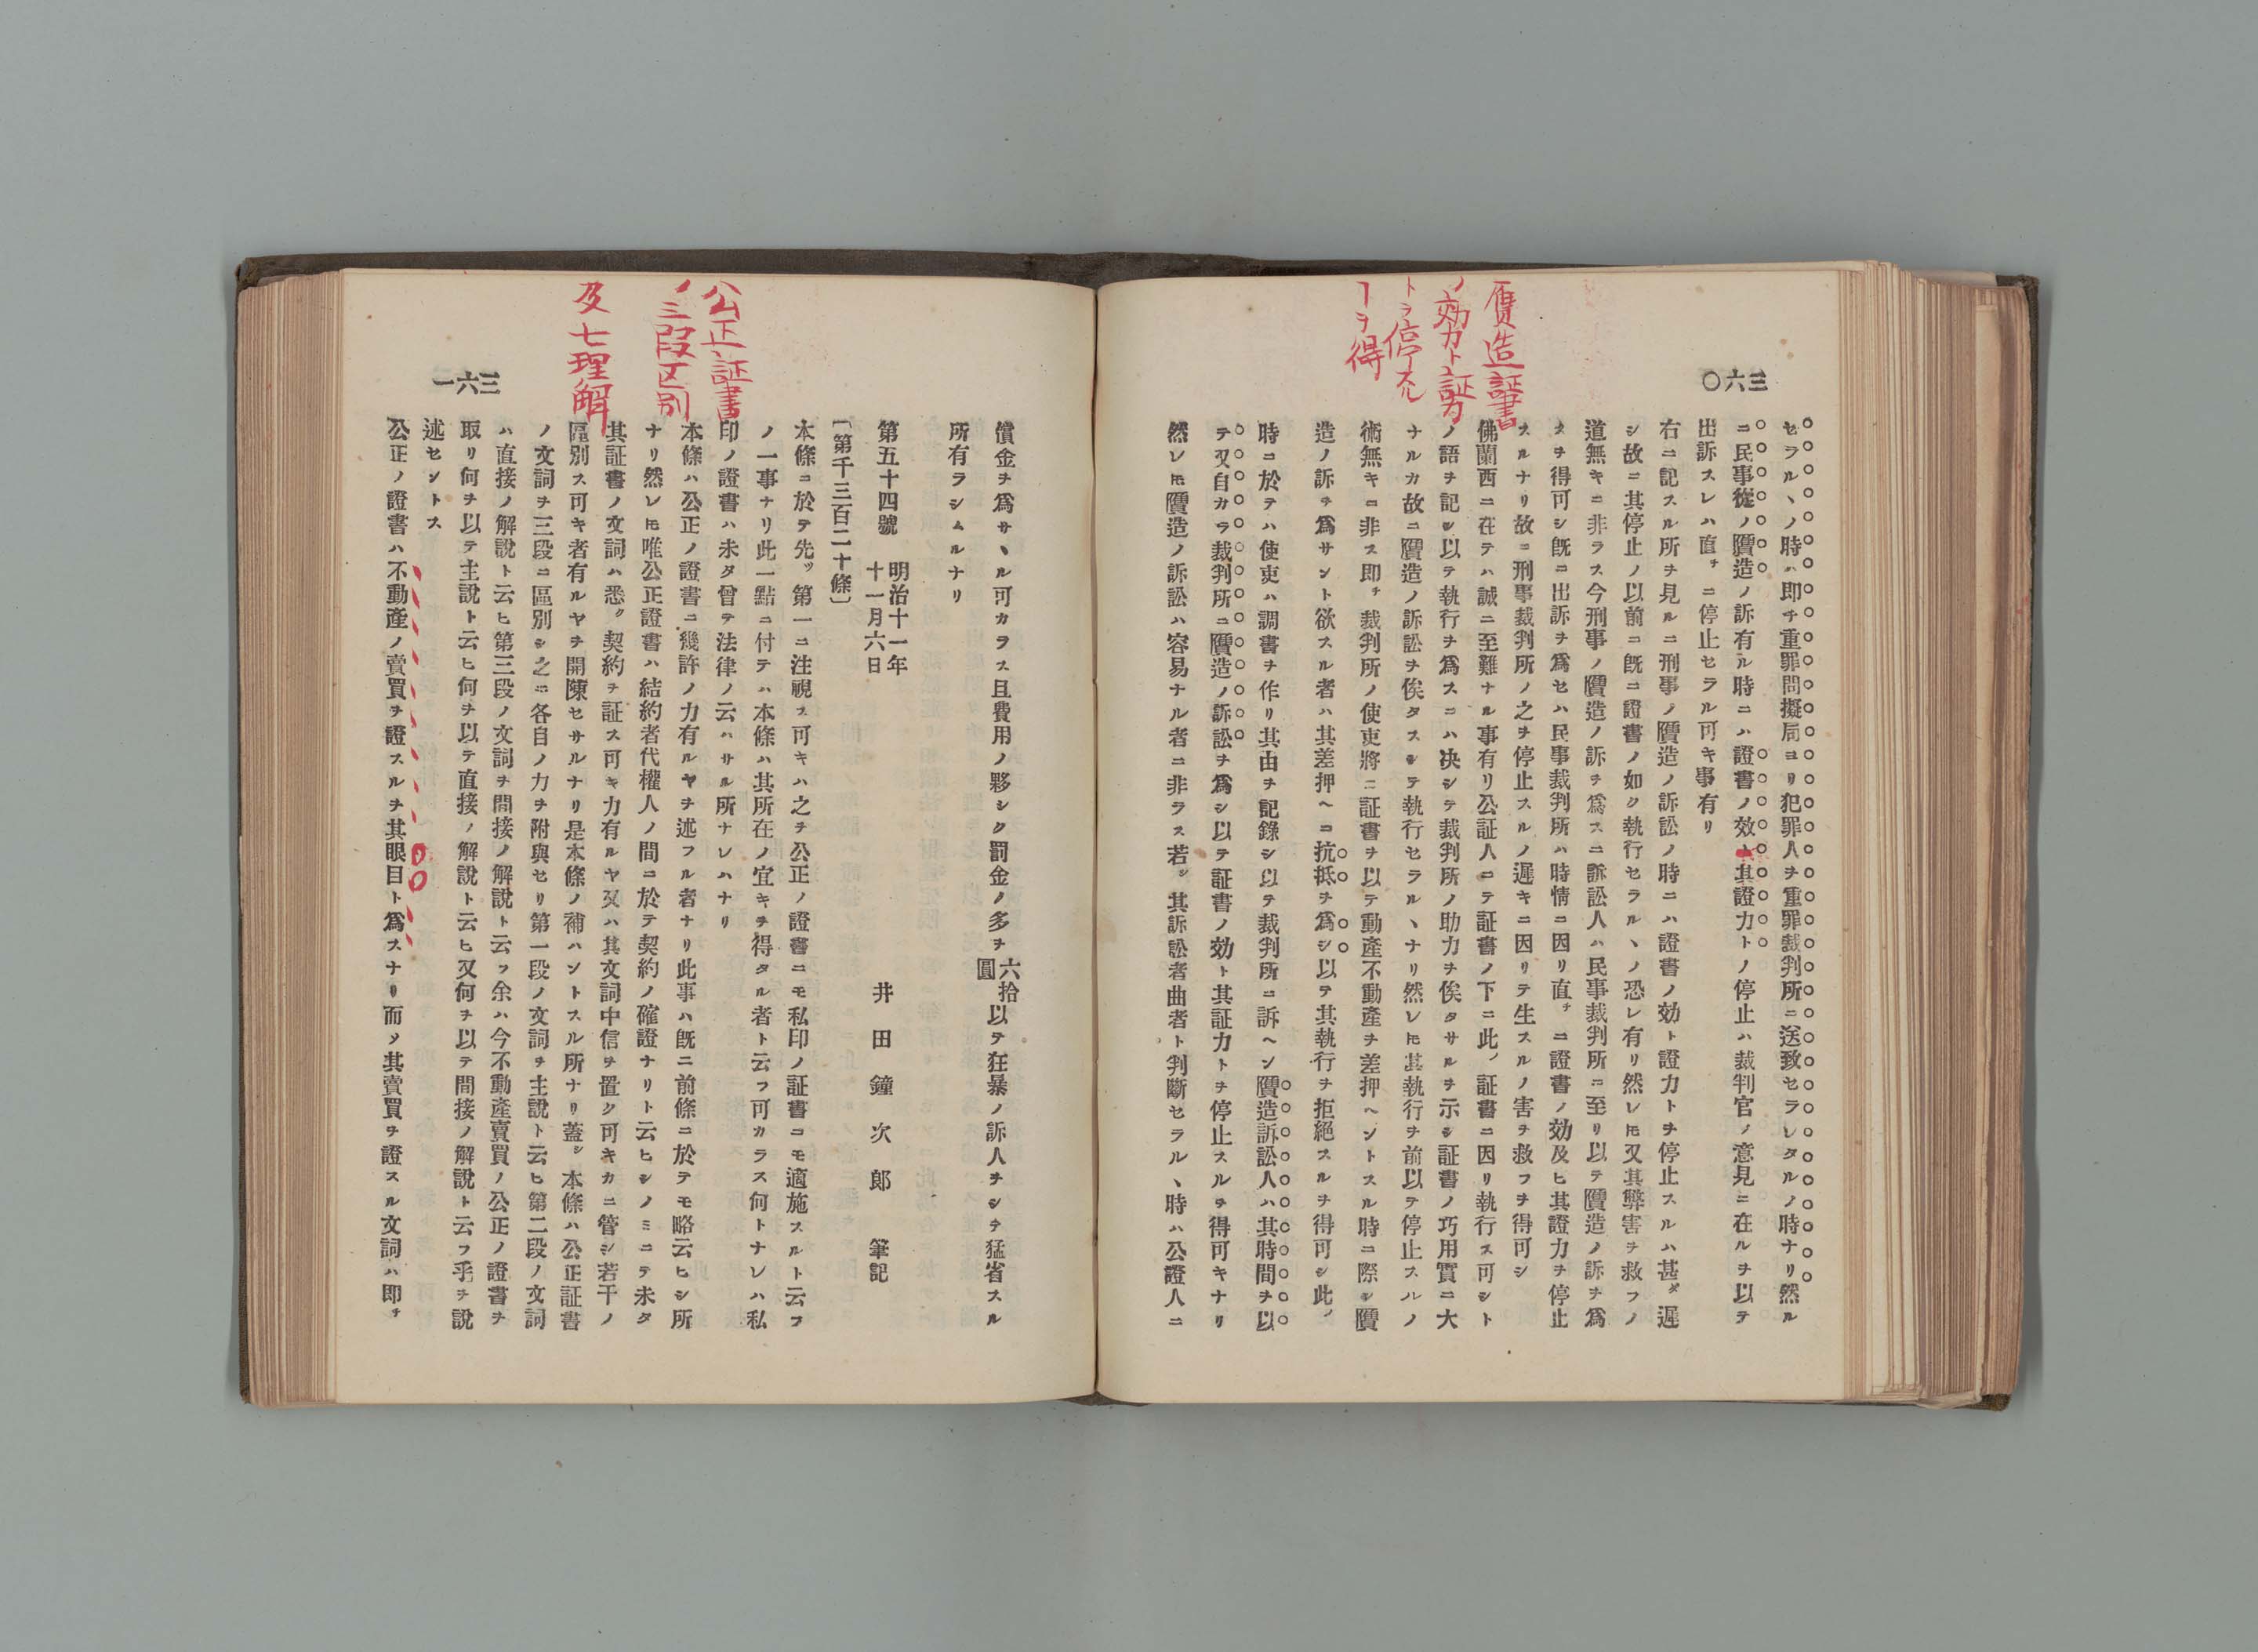 贋造証書
ノ効力ト証力
トヲ停止
ヿヲ得
三六〇
セラルヽノ時ハ即チ重罪問擬局ヨリ犯罪人ヲ重罪裁判所ニ送致セラレタルノ時ナリ然ル
ニ民事從ノ贋造ノ訴有ル時ニハ證書ノ效ト其證力トノ停止ハ裁判官ノ意見ニ在ルヲ以テ
出訴スレハ直チニ停止セラル可キ事有リ
右ニ記スル所ヲ見ルニ刑事ノ贋造ノ訴訟ノ時ニハ證書ノ効ト證力トヲ停止スルハ甚タ遲
シ故ニ其停止ノ以前ニ既ニ證書ノ如ク執行セラルヽノ恐レ有リ然レ𪜈又其弊害ヲ救フノ
道無キニ非ラス今刑事ノ贋造ノ訴ヲ爲スニ訴訟人ハ民事裁判所ニ至リ以テ贋造ノ訴ヲ爲
スヲ得可シ既ニ出訴ヲ爲セハ民事裁判所ハ時情ニ因リ直チニ證書ノ効及ヒ其證力ヲ停止
スルナリ故ニ刑事裁判所ノ之ヲ停止スルノ遲キニ因リテ生スルノ害ヲ救フヲ得可シ
佛蘭西ニ在テハ誠ニ至難ナル事有リ公証人ニテ証書ノ下ニ此ノ証書ニ因リ執行ス可シト
ノ語ヲ記シ以テ執行ヲ爲スニハ决シテ裁判所ノ助力ヲ俟タサルヲ示シ証書ノ巧用實ニ大
ナルカ故ニ贋造ノ訴訟ヲ俟タスシテ執行セラルヽナリ然レ𪜈其執行ヲ前以テ停止スルノ
術無キニ非ス即チ裁判所ノ使吏將ニ証書ヲ以テ動產不動產ヲ差押ヘントスル時ニ際シ贋
造ノ訴ヲ爲サント欲スル者ハ其差押ヘニ抗抵ヲ爲シ以テ其執行ヲ拒絕スルヲ得可シ此ノ
時ニ於テハ使吏ハ調書ヲ作リ其由ヲ記錄シ以テ裁判所ニ訴ヘン贋造訴訟人ハ其時間ヲ以
テ又自カラ裁判所ニ贋造ノ訴訟ヲ爲シ以テ証書ノ効ト其証力トヲ停止スルヲ得可キナリ
然レ𪜈贋造ノ訴訟ハ容易ナル者ニ非ラス若シ其訴訟者曲者ト判斷セラルヽ時ハ公證人ニ
公正証書
ノ三段区別
及七理解
三六一
償金ヲ爲サヽル可カラス且費用ノ夥シク罰金ノ多ヲ六拾圓以テ狂暴ノ訴人ヲシテ猛省スル
所有ラシムルナリ
第五十四號 明治十一年十一月六日 井田鐘次郞 筆記
〔第千三百二十條〕
本條ニ於テ先ツ第一ニ注視ス可キハ之ヲ公正ノ證書ニモ私印ノ証書ニモ適施スルト云フ
ノ一事ナリ此一點ニ付テハ本條ハ其所在ノ宜キヲ得タル者ト云フ可カラス何トナレハ私
印ノ證書ハ未タ曾テ法律ノ云ハサル所ナレハナリ
本條ハ公正ノ證書ニ幾許ノ力有ルヤヲ述フル者ナリ此事ハ既ニ前條ニ於テモ略云ヒシ所
ナリ然レ𪜈唯公正證書ハ結約者代權人ノ間ニ於テ契約ノ確證ナリト云ヒシノミニテ未タ
其証書ノ文詞ハ悉ク契約ヲ証ス可キ力有ルヤ又ハ其文詞中信ヲ置ク可キカニ管シ若干ノ
區別ス可キ者有ルヤヲ開陳セサルナリ是本條ノ補ハントスル所ナリ蓋シ本條ハ公正証書
ノ文詞ヲ三段ニ區別シ之ニ各自ノ力ヲ附與セリ第一段ノ文詞ヲ主說ト云ヒ第二段ノ文詞
ハ直接ノ解說ト云ヒ第三段ノ文詞ヲ間接ノ解說ト云フ余ハ今不動產賣買ノ公正ノ證書ヲ
取リ何ヲ以テ主說ト云ヒ何ヲ以テ直接ノ解說ト云ヒ又何ヲ以テ間接ノ解說ト云フ乎ヲ說
述セントス
公正ノ證書ハ不動產ノ賣買ヲ證スルヲ其眼目ト爲スナリ而ソ其賣買ヲ證スル文詞ハ即チ